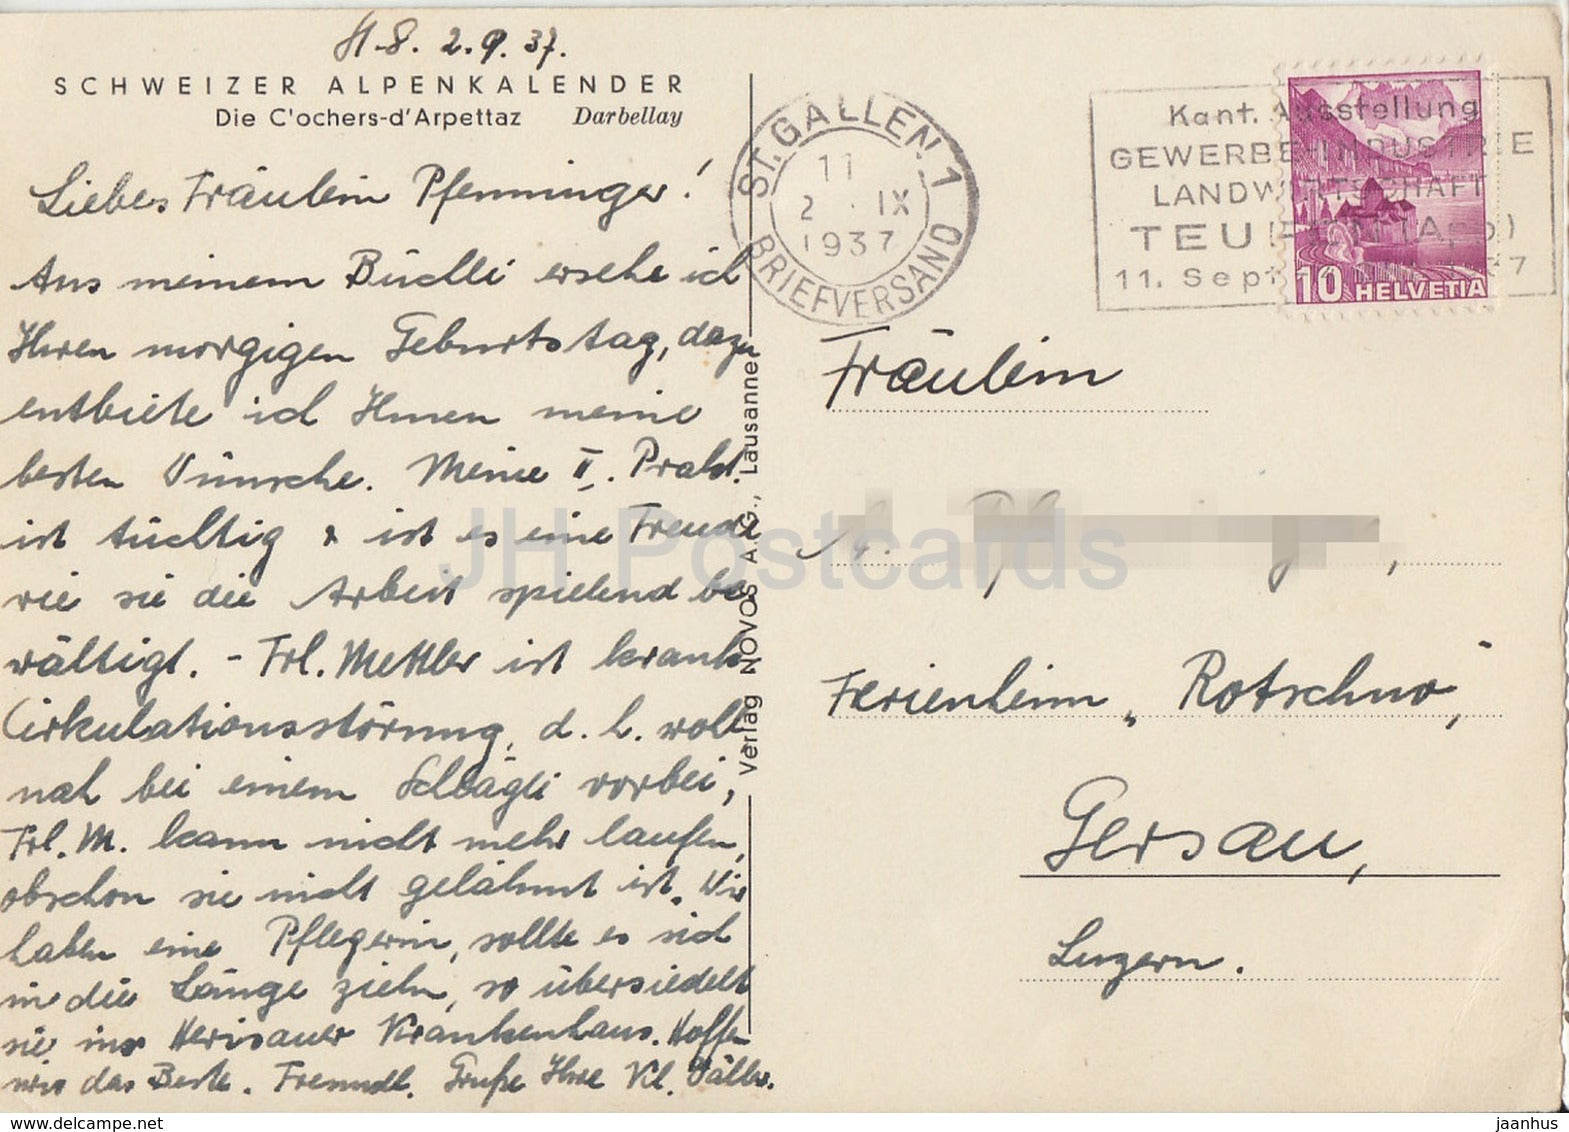 St. G. 2.9.37.
SCHWEIZER ALPENKALENDER
Die C'ochers-d'Arpettaz Darbellay
Liebes Fräulein Pfenninger!
Aus meinem Büchli ersehe ich
Ihren morgigen Geburtstag, dazu
entbiete ich Ihnen meine
besten Wünsche. Meine II. Prakt.
ist tüchtig & ist es eine Freude
wie sie die Arbeit spielend be-
wältigt. - Frl. Mettler ist krank
Cirkulationsstörung, d. h. wohl
nah bei einem Schlägli vorbei,
Frl. M. kann nicht mehr laufen,
obschon sie nicht gelähmt ist. Wir
haben eine Pflegerin, sollte es sich
in die Länge ziehn, so übersiedelt
sie ins Herisauer Krankenhaus. Hoffen
wir das Beste. Freundl. Grüße Ihre Kl.
Verlag NOVOS A.G., Lausanne
ST. GALLEN 1
11
2. IX
1937
BRIEFVERSAND
Kant. Ausstellung
GEWERBE-INDUSTRIE
LANDWIRTSCHAFT
TEU
11. Sept
10 HELVETIA
Fräulein
Ferienheim „Rotschuo",
Gersau,
Luzern.
JH Postcards
www.delcampe.net
jaanhus